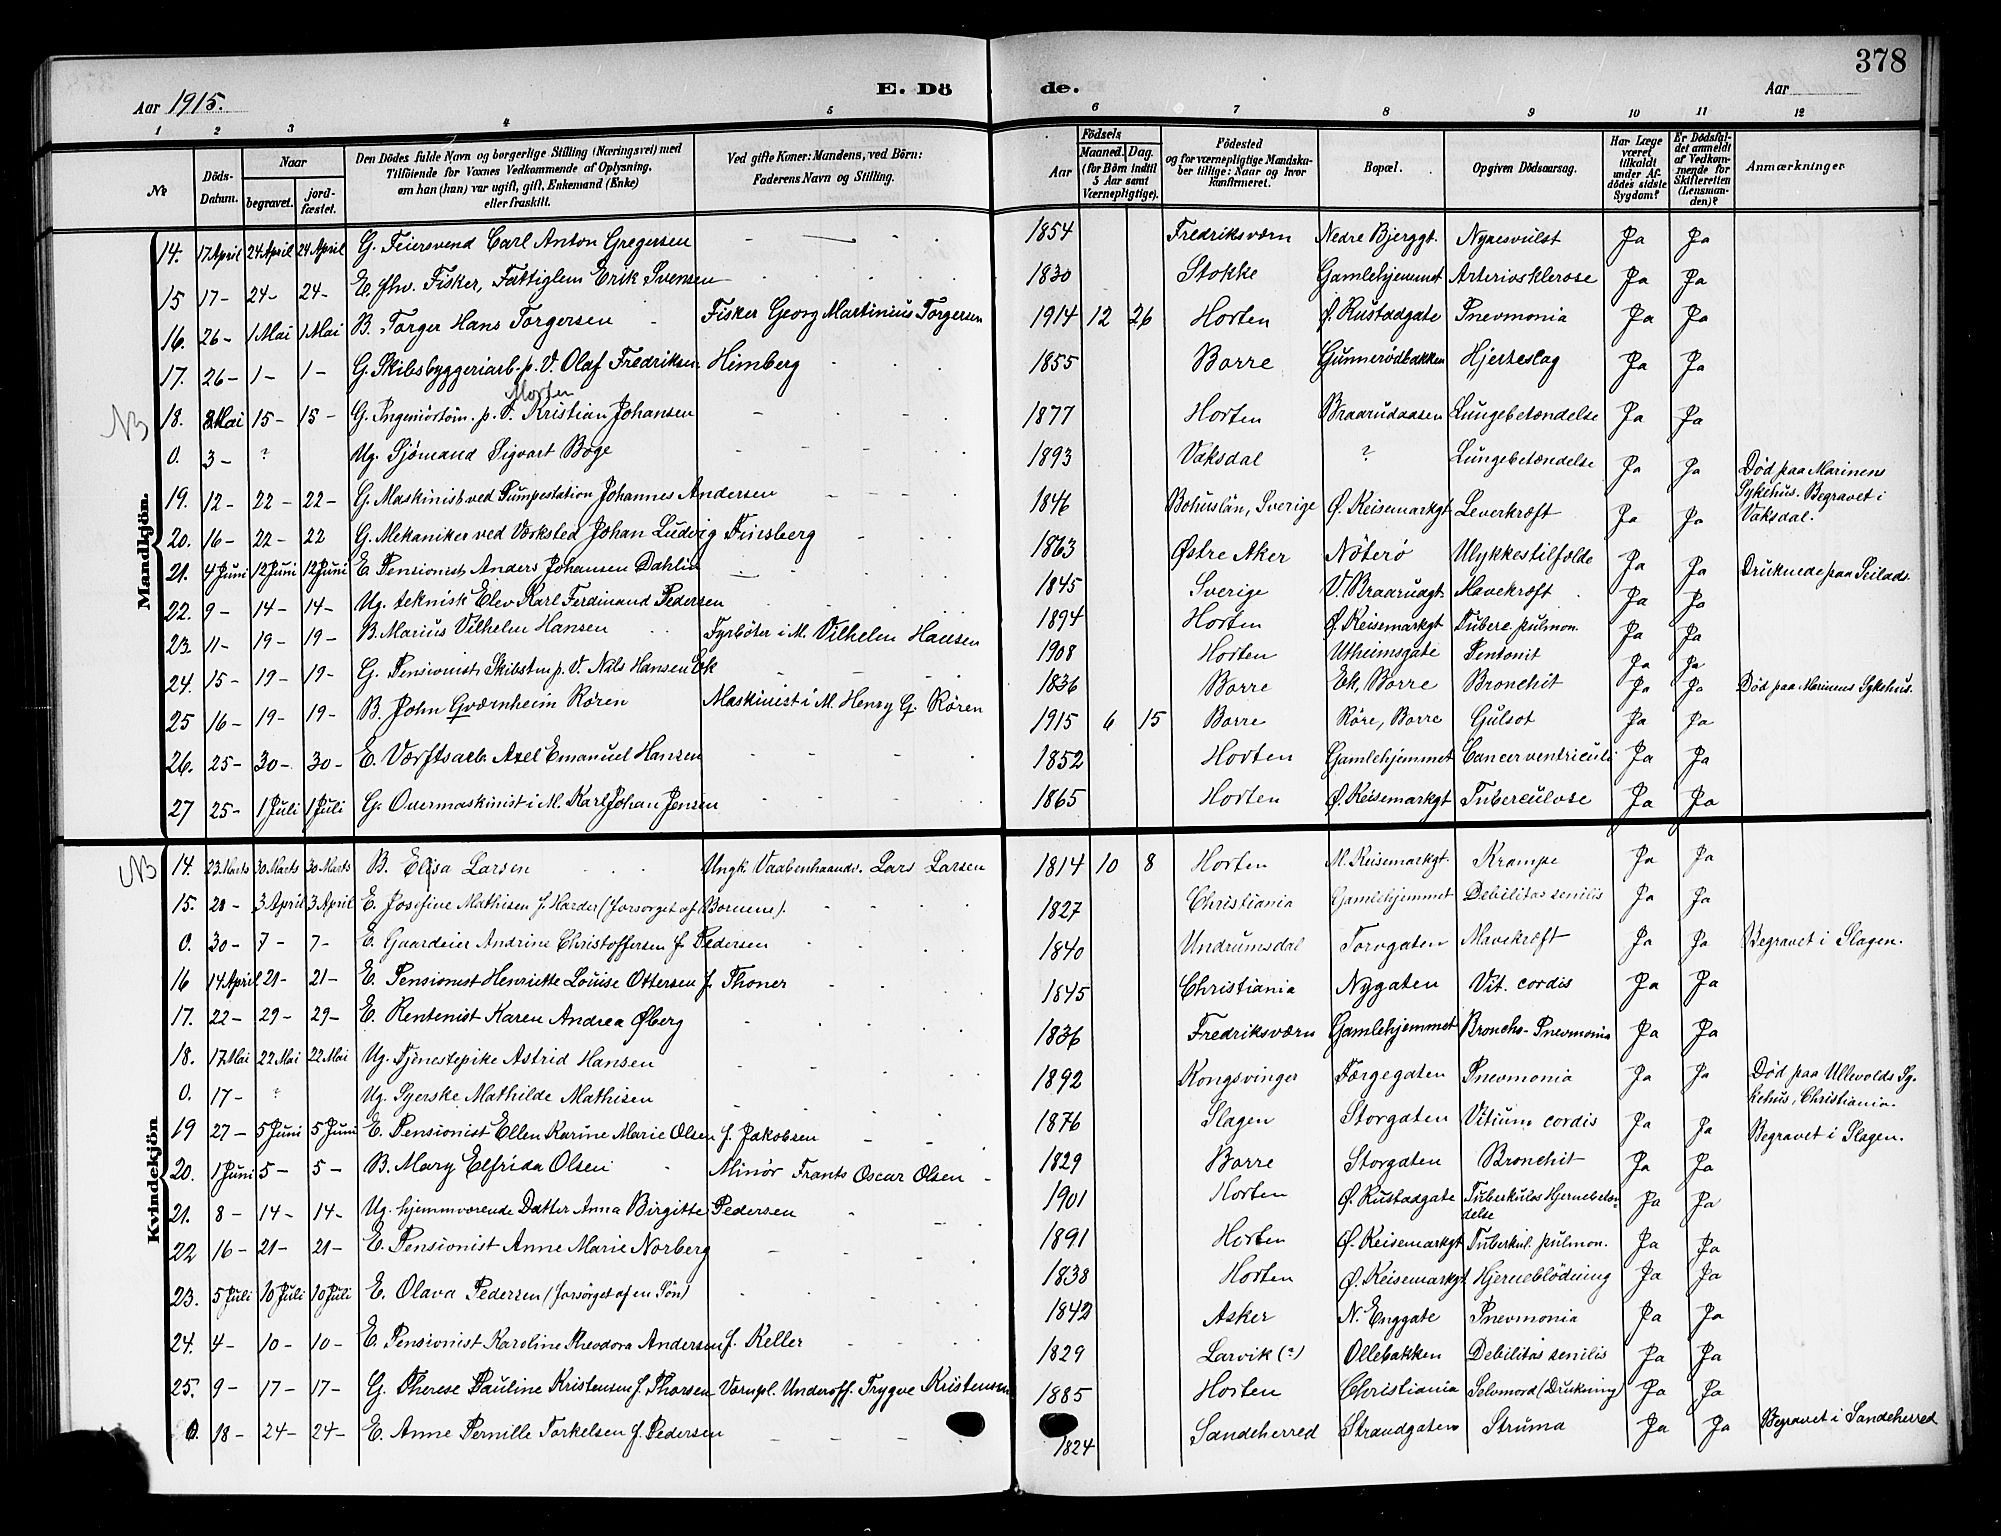 378
Aar 1915. E. Dö de. Aar
1 2 3 4 5 6 7 8 9 10 11 12
№ Döds-Datum. Naar begravet. jord-fæstet. Den Dödes fulde Navn og borgerlige Stilling (Næringsvei) med Tilföiende for Voxnes Vedkommende af Oplysning, om han (hun) var ugift, gift, Enkemand (Enke) eller fraskilt. Ved gifte Koner: Mandens, ved Börn: Faderens Navn og Stilling. Födsels Aar Maaned. Dag. (for Börn indtil 5 Aar samt Værnepligtige). Födested og for værnepligtige Mandskaber tillige: Naar og hvor konfirmeret. Bopæl. Opgiven Dödsaarsag. Har Læge været tilkaldt under Afdödes sidste Sygdom? Er Dödsfaldet anmeldt af Vedkommende for Skifteretten (Lensmanden)? Anmærkninger
Mandkjön.
14. 17 April 24 April 24 April G. Feiersvend Carl Anton Gregersen 1854 Fredriksværn Nedre Bjerggt. Nyresvulst Ja Ja
15 17- 24- 24- E. fhv. Fisker, Fattiglem Erik Svensen 1830 Stokke Gamlehjemmet Arteriosklerose Ja Ja
16. 26- 1 Mai 1 Mai B. Torger Hans Torgersen Fisker Georg Martinius Torgersen 1914 12 26 Horten Ø. Rustadgate Pnevmonia Ja Ja
17. 26- 1- 1- G. Skibsbyggeriarb. p. V. Olaf Fredriksen Himberg 1855 Borre Gunnerødbakken Hjerteslag Ja Ja
Morten
NB 18. 8 Mai 15- 15- G. Ingeniörtöm. p. V. Kristian Johansen 1877 Horten Braarudaasen Lungebetændelse Ja Ja
0. 3- ? Ug. Sjømand Sigvart Boge 1893 Vaksdal ? Lungebetændelse Ja Ja Død paa Marinens Sykehus. Begravet i Vaksdal.
19. 12- 22- 22- G. Maskinist ved Pumpestation Johannes Andersen 1846 Bohuslän, Sverige Ø. Keisemarkgt Leverkræft Ja Ja
20. 16- 22- 22 G. Mekaniker ved Værksted Johan Ludvig Finsberg 1863 Østre Aker Nöterö Ulykkestilfælde Ja Ja Druknede paa Seilads.
21. 4 Juni 12 Juni 12 Juni E. Pensionist Anders Johansen Dahlin 1845 Sverige V. Braarudgt. Mavekræft Ja Ja
22. 9- 14- 14- Ug. teknisk Elev Karl Ferdinand Pedersen 1894 Horten Ø. Keisemarkgt Tuberc pulmon. Ja Ja
23. 11- 19- 19- B. Marius Vilhelm Hansen Fyrbøter i M. Vilhelm Hansen 1908 Horten Utheimsgate Peritonit Ja Ja
24. 15- 19- 19- G. Pensionist, Skibstm p. V. Nils Hansen Ek 1836 Borre Ek, Borre Bronchit Ja Ja Død paa Marinens Sykehus.
25 16- 19- 19- B. John Gværnheim Røren Maskinist i M. Henry G. Røren 1915 6 15 Borre Røre, Borre Gulsot Ja Ja
26. 25- 30- 30- E. Værftsarb. Axel Emanuel Hansen 1852 Horten Gamlehjemmet Cancer ventriculi Ja Ja
27 25- 1 Juli 1 Juli G. Overmaskinist i M. Karl Johan Jensen 1865 Horten Ø. Keisemarkgt Tuberculose Ja Ja
Kvindekjön
NB 14. 23 Marts 30 Marts 30 Marts B. Elisa Larsen Ungk. Vaabenhaandv. Lars Larsen 1814 10 8 Horten M. Keisemarkgt. Krampe Ja Ja
15. 28- 3 April 3 April E. Josefine Mathisen f. Harder (forsorget af Børnene). 1827 Christiania Gamlehjemmet Debilitas senilis Ja Ja
0. 30- 7- 7- E. Gaardeier Andrine Christoffersen f. Pedersen 1840 Undrumsdal Torvgaten Mavekræft Ja Ja Begravet i Slagen.
16 14 April 21- 21- E. Pensionist Henriette Louise Ottersen f. Thoner 1845 Christiania Nygaten Vit. cordis Ja Ja
17. 22- 29- 29- E. Rentenist Karen Andrea Øberg 1836 Fredriksværn Gamlehjemmet Broncho-Pnevmonia Ja Ja
18. 17 Mai 22 Mai 22 Mai Ug. Tjenestepike Astrid Hansen 1892 Kongsvinger Færgegaten Pnevmonia Ja Ja Død paa Ullevolds Sykehus, Christiania.
0. 17- ? Ug. Syerske Mathilde Mathisen 1876 Slagen Storgaten Vitium cordis Ja Ja Begravet i Slagen.
19 27- 5 Juni 5 Juni E. Pensionist Ellen Karine Marie Olsen f. Jakobsen 1829 Borre Storgaten Bronchit Ja Ja
20. 1 Juni 5- 5- B. Mary Elfrida Olsen Minør Frants Oscar Olsen 1901 Horten Ø. Rustadgate Tuberkuløs Hjernebetændelse Ja Ja
21. 8- 14- 14- Ug. hjemmværende Datter Anna Birgitte Pedersen 1891 Horten Ø. Keisemarkgt Tuberkul. pulmon. Ja Ja
22 16- 21- 21- E. Pensionist Anne Marie Norberg 1838 Horten Ø. Keisemarkgt Hjerneblödning Ja Ja
23. 5 Juli 10 Juli 10 Juli E. Olava Pedersen (forsörget af en Sön) 1842 Asker N. Enggate Pnevmonia Ja Ja
24. 4- 10- 10- E. Pensionist Karoline Theodora Andersen f. Keller 1829 Larvik (?) Ollebakken Debilitas senilis Ja Ja
25. 9- 17- 17- G. Therese Pauline Kristensen f. Thorsen Værnpl. Underoff. Trygve Kristensen 1885 Horten Christiania Selvmord (Drukning) Ja Ja
0. 18- 24- 24- E. Anne Pernille Torkelsen f. Pedersen 1824 Sandeherred Strandgaten Struma Ja Ja Begravet i Sandeherred